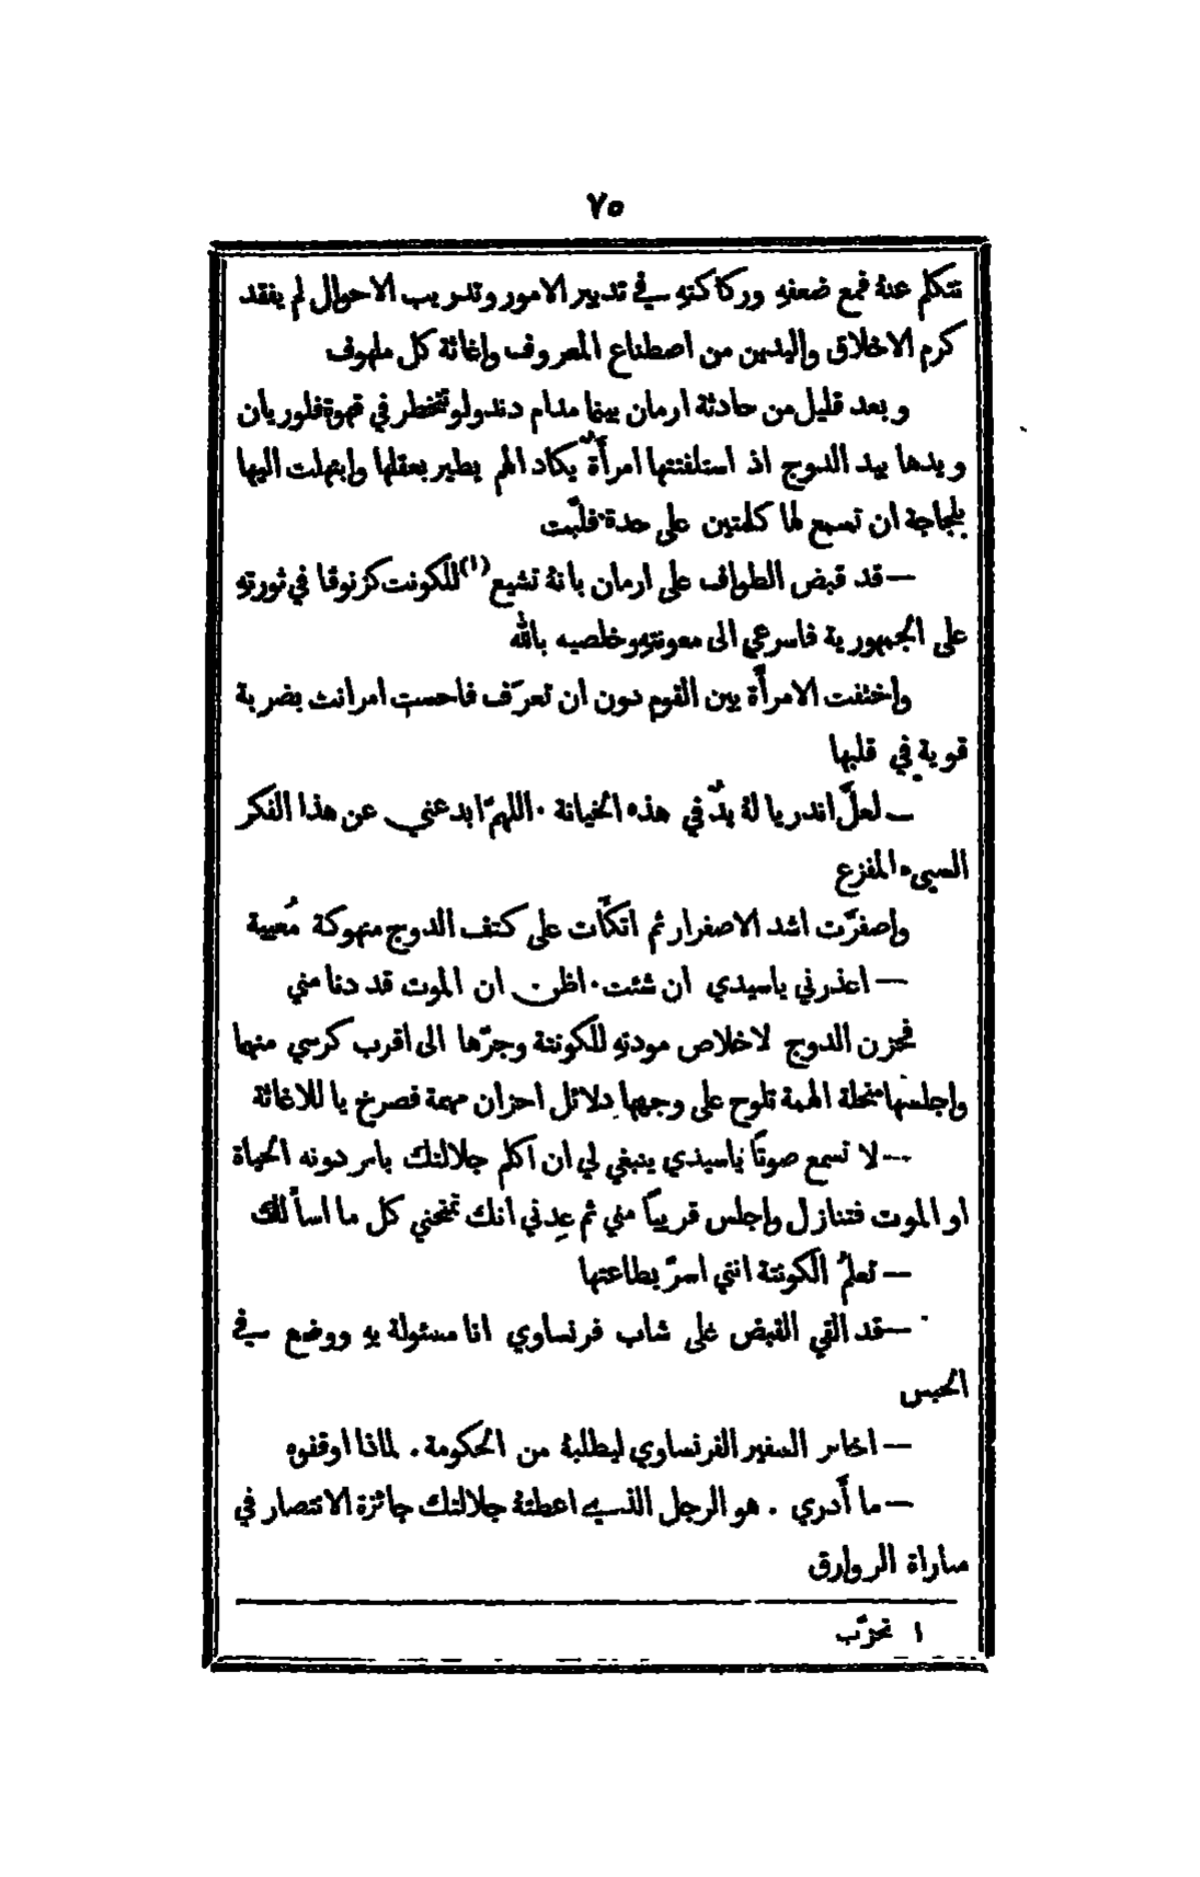 ٧٥
نتكلم عنهُ فمع ضعفهِ وركاكتهِ في تدبير الامور وتدريب الاحوال لم يفقد
كرم الاخلاق واليدين من اصطناع المعروف واغاثة كل ملهوف
وبعد قليل من حادثة ارمان بينما مدام دندولو تتخطر في قهوة فلوريان
ويدها بيد الدوج اذ استلفتتها امرأةٌ يكاد الهم يطير بعقلها وابتهلت اليها
بلجاجة ان تسمع لها كلمتين على حدة فلبّت
— قد قبض الطواف على ارمان بانهُ تشيع (١) للكونت كزنوقا في ثورتهِ
على الجمهورية فاسرعي الى معونتهِ وخلصيه بالله
واختفت الامرأة بين القوم دون ان تعرّف فاحست امرانت بضربة
قوية في قلبها
— لعلَّ اندريا لهُ يدٌ في هذه الخيانة . اللهمّ ابدعني عن هذا الفكر
السيء المفزع
واصفرّت اشد الاصفرار ثم اتكأت على كتف الدوج منهوكة مُعيية
— اعذرني ياسيدي ان شئت . اظن ان الموت قد دنا مني
فحزن الدوج لاخلاص مودتهِ للكونتة وجرّها الى اقرب كرسي منها
واجلسها منحلة الهمة تلوح على وجهها دلائل احزان مهمة فصرخ يا للاغاثة
— لا تسمع صوتًا ياسيدي ينبغي لي ان اكلم جلالتك بامر دونه الحياة
او الموت فتنازل واجلس قريبًا مني ثم عِدني انك تمنحني كل ما اسألك
— تعلمُ الكونتة انني اسرّ بطاعتها
— قد القي القبض على شاب فرنساوي انا مسئولة بهِ ووضع في
الحبس
— اخابر السفير الفرنساوي ليطلبهُ من الحكومة . لماذا اوقفوه
— ما أَدري . هو الرجل الذي اعطتهُ جلالتك جائزة الانتصار في
مباراة الزوارق
١ تحزّب